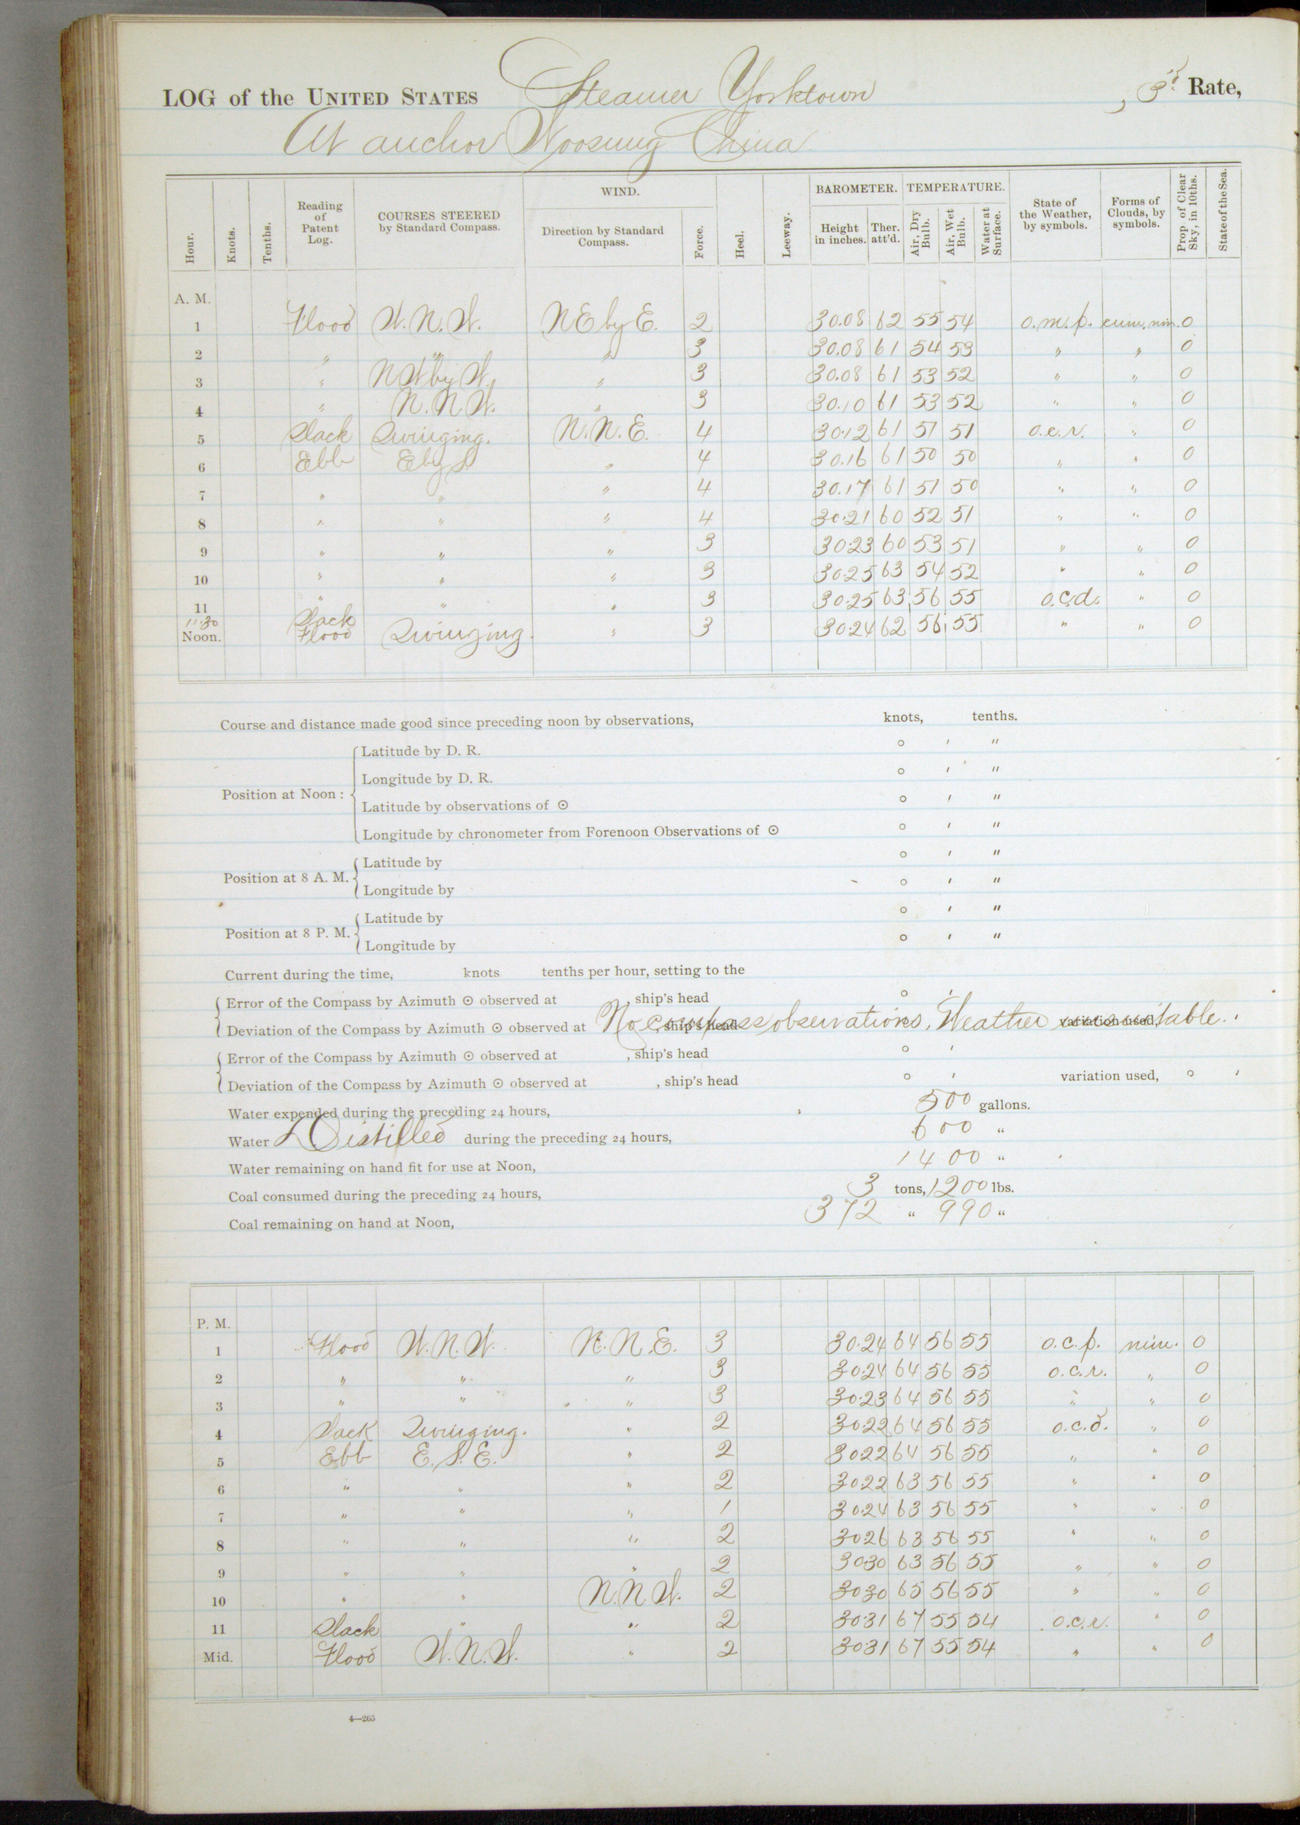 LOG of the UNITED STATES Steamer Yorktown, 3rd Rate,
At anchor Woosung China
Hour. Knots. Tenths. Reading of Patent Log. COURSES STEERED by Standard Compass. WIND. Direction by Standard Compass. Force. Heel. Leeway. BAROMETER. Height in inches. Ther. att'd. TEMPERATURE. Air, Dry Bulb. Air, Wet Bulb. Water at Surface. State of the Weather, by symbols. Forms of Clouds, by symbols. Prop. of Clear Sky, in 10ths. State of the Sea.
A. M.
1 Flood W.N.W. NE by E. 2 30.08 62 55 54 o.m.p. cum. nim. 0
2 " " " 3 30.08 61 54 53 " " 0
3 " NW by W. " 3 30.08 61 53 52 " " 0
4 " N.N.W. " 3 30.10 61 53 52 " " 0
5 Slack Swinging. N.N.E. 4 30.12 61 51 51 o.c.r. " 0
6 Ebb E by S " 4 30.16 61 50 50 " " 0
7 " " " 4 30.17 61 51 50 " " 0
8 " " " 4 30.21 60 52 51 " " 0
9 " " " 3 30.23 60 53 51 " " 0
10 " " " 3 30.25 63 54 52 " " 0
11 " " " 3 30.25 63 56 55 o.c.d. " 0
11.30 Slack
Noon. Flood Swinging. " 3 30.24 62 56 55 " " 0
Course and distance made good since preceding noon by observations, knots, tenths.
Position at Noon: Latitude by D. R. ° ' "
Longitude by D. R. ° ' "
Latitude by observations of ⊙ ° ' "
Longitude by chronometer from Forenoon Observations of ⊙ ° ' "
Position at 8 A. M. Latitude by ° ' "
Longitude by ° ' "
Position at 8 P. M. Latitude by ° ' "
Longitude by ° ' "
Current during the time, knots tenths per hour, setting to the
Error of the Compass by Azimuth ⊙ observed at , ship's head ° '
Deviation of the Compass by Azimuth ⊙ observed at , ship's head variation used, No compass observations, Weather table.
Error of the Compass by Azimuth ⊙ observed at , ship's head ° '
Deviation of the Compass by Azimuth ⊙ observed at , ship's head ° ' variation used, ° '
Water expended during the preceding 24 hours, 500 gallons.
Water Distilled during the preceding 24 hours, 600 "
Water remaining on hand fit for use at Noon, 1400 "
Coal consumed during the preceding 24 hours, 3 tons, 1200 lbs.
Coal remaining on hand at Noon, 372 " 990 "
P. M.
1 Flood W.N.W. N.N.E. 3 30.24 64 56 55 o.c.p. nim. 0
2 " " " 3 30.24 64 56 55 o.c.r. " 0
3 " " " 3 30.23 64 56 55 " " 0
4 Slack Swinging. " 2 30.22 64 56 55 o.c.d. " 0
5 Ebb E.S.E. " 2 30.22 64 56 55 " " 0
6 " " " 2 30.22 63 56 55 " " 0
7 " " " 1 30.24 63 56 55 " " 0
8 " " " 2 30.26 63 56 55 " " 0
9 " " " 2 30.30 63 56 55 " " 0
10 " " N.N.W. 2 30.30 65 56 55 " " 0
11 Slack " " 2 30.31 67 55 54 o.c.r. " 0
Mid. Flood W.N.W. " 2 30.31 67 55 54 " " 0
4—265